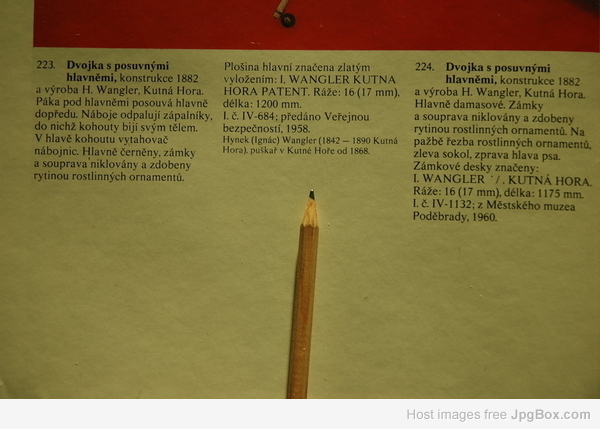 223. Dvojka s posuvnými
hlavněmi, konstrukce 1882
a výroba H. Wangler, Kutná Hora.
Páka pod hlavněmi posouvá hlavně
dopředu. Náboje odpalují zápalníky,
do nichž kohouty bijí svým tělem.
V hlavě kohoutu vytahovač
nábojnic. Hlavně černěny, zámky
a souprava niklovány a zdobeny
rytinou rostlinných ornamentů.
Plošina hlavní značena zlatým
vyložením: I. WANGLER KUTNA
HORA PATENT. Ráže: 16 (17 mm),
délka: 1200 mm.
I. č. IV-684; předáno Veřejnou
bezpečností, 1958.
Hynek (Ignác) Wangler (1842 — 1890 Kutná
Hora). puškař v Kutné Hoře od 1868.
224. Dvojka s posuvnými
hlavněmi, konstrukce 1882
a výroba H. Wangler, Kutná Hora.
Hlavně damasové. Zámky
a souprava niklovány a zdobeny
rytinou rostlinných ornamentů. Na
pažbě řezba rostlinných ornamentů,
zleva sokol, zprava hlava psa.
Zámkové desky značeny:
I. WANGLER / . KUTNÁ HORA.
Ráže: 16 (17 mm), délka: 1175 mm.
I. č. IV-1132; z Městského muzea
Poděbrady, 1960.
Host images free JpgBox.com